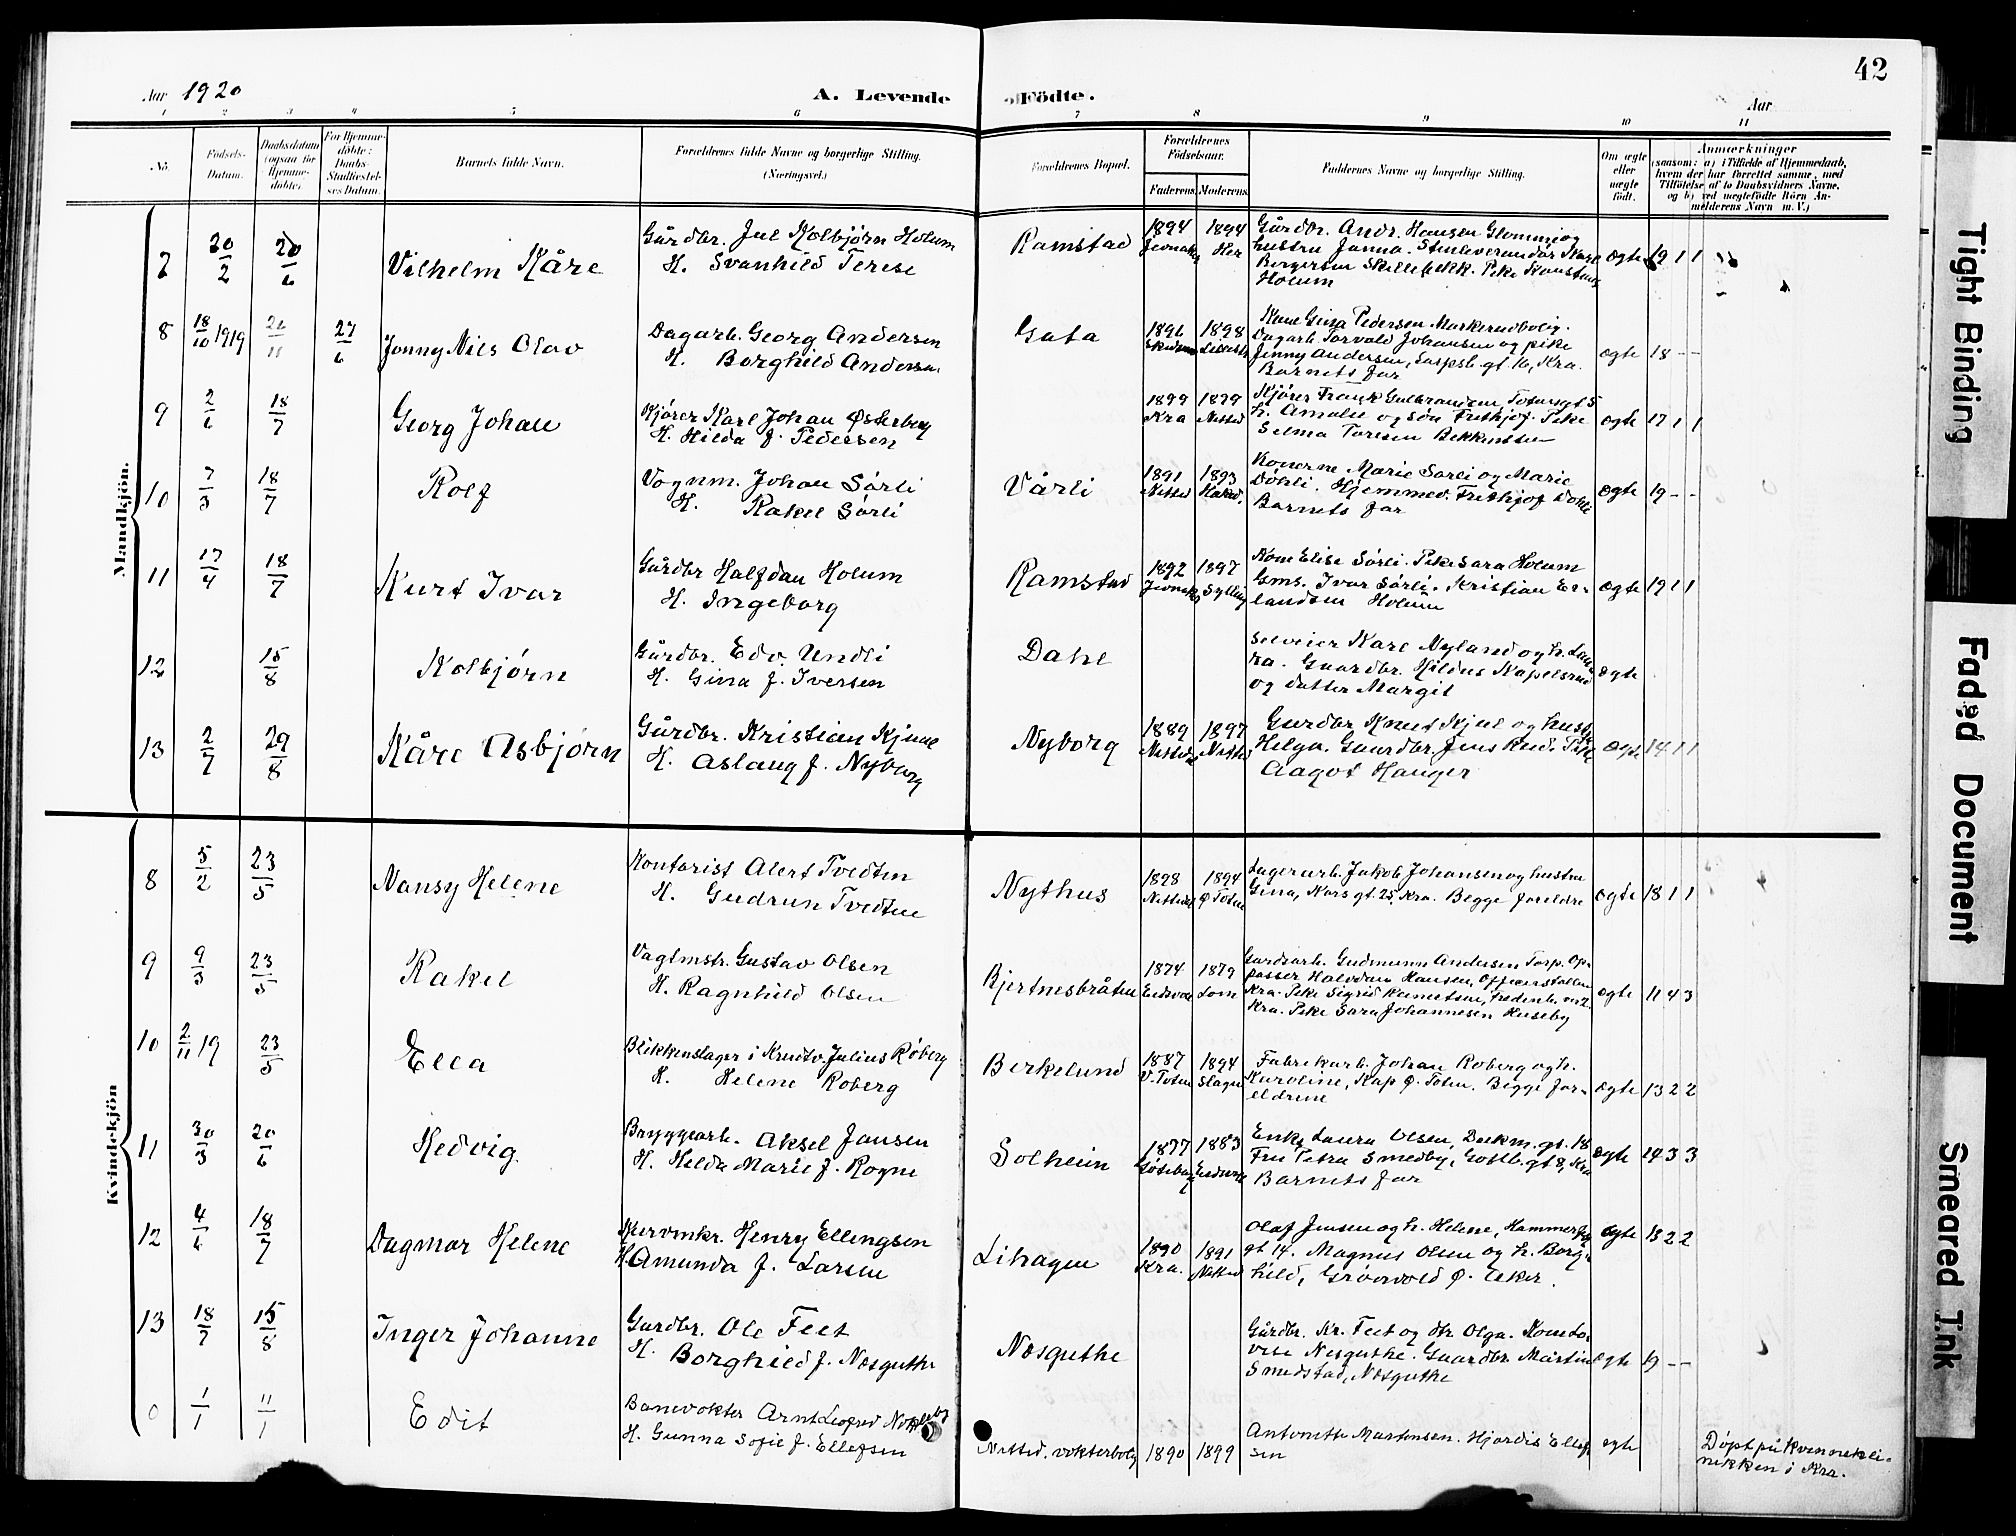 42
Aar 1920
A. Levende
Födte.
Aar
1 2 3 4 5 6 7 8 9 10 11
No.
Födsels-
Datum.
Daabsdatum
(ogsaa for
Hjemme-
døbte).
For Hjemme-
døbte:
Daabs-
Stadfæstel-
ses Datum.
Barnets fulde Navn.
Forældrenes fulde Navne og borgerlige Stilling.
(Næringsvei.)
Forældrenes Bopæl.
Forældrenes
Födselsaar.
Faderens. Moderens.
Faddernes Navne og borgerlige Stilling.
Om ægte
eller
uægte
født.
Anmærkninger
(saasom: a) i Tilfælde af Hjemmedaab,
hvem der har forrettet samme, med
Tilföielse af to Daabsvidners Navne,
og b) ved uægtefödte Börn An-
melderens Navn m. V.)
Mandkjön.
7 20/2 20/6 Vilhelm Kåre
Gårdbr. Jul Kolbjørn Holum
H. Svanhild Terese
Ramstad
1894 1894
Jevnaker Her
Gårdbr. Andr. Hansen Glommi og
hustru Janna. Stenleverandør Kare
Borgersen Skillebekk. Pike Konstanse
Holum
ægte 19 1 1
8 18/10 1919 27/6 Jonny Nils Olav
Dagarb. Georg Andersen
H. Borghild Andersen
Gata
1896 1898
Kone Gina Pedersen Markerudbolig.
Dagarb. Torvald Johansen og pike
Jenny Andersen, Sarpsb. gt. 16, Kra.
Barnets far
ægte 18 - -
9 2/6 18/7 Georg Johan
Kjører Karl Johan Østerberg
H. Hilda f. Pedersen
1899 1899
Kra Nitted
Kjører Frank Gulbrandsen Totensgt 5
h. Amalie og søn Frithjof. Pike
Selma Toresen Bekkensten
ægte 17 1 1
10 7/3 18/7 Rolf
Vognm. Johan Sørli
H. Rakel Sørli
Vårli
1891 1893
Nitted Hakad.
Konerne Marie Sørli og Marie
Døhli. Hjemmev. Frithjof Døhli
Barnets far
ægte 19 - -
11 17/4 18/7 Kurt Ivar
Gårdbr Halfdan Holum
H. Ingeborg
Ramstad
1892 1897
Jevnaker Sylling
Kone Elise Sørli. Pike Sara Holum
Gms. Ivar Sørli. Kristian Er-
landsen Holum
ægte 19 1 1
12 15/8 Kolbjørn
Gårdbr. Edv. Undli
H. Gina f. Iversen
Dahl
Selveier Kare Nyland og h. Lau-
ra. Gaardbr. Hildus Kapelsrud
og datter Margit
ægte
13 2/7 29/8 Kåre Asbjørn
Gårdbr. Kristian Kjuul
H. Aslaug f. Nyborg
Nyborg
1889 1897
Nittedal Nitted
Gardbr Knut Kjul og hustru
Helga. Gaardbr. Jens Rud. Pike
Aagot Hauger
ægte 14 1 1
Kvindekjön
8 5/2 23/5 Nansy Helene
Kontorist Alert Tvedten
H. Gudrun Tvedten
Nythus
1898 1894
Nittedal Ø Toten
Lagerarb. Jakob Johansen og hustru
Gina, Nors gt. 25, Kra. Begge foreldre
ægte 18 1 1
9 9/3 23/5 Rakel
Vagtmstr. Gustav Olsen
H. Ragnhild Olsen
Bjertnesbråten
1874 1879
Eidsvold Lom
Gardsarb. Gudmunn Andersen Torp. Op-
passer Halvdan Hansen, Offiserstallen
Kra. Pike Sigrid Kanutsen, Fredenb. vei 2
Kra. Pike Sara Johannesen Huseby
ægte 11 4 3
10 2/11 19 23/5 Ella
Blikkenslager i Krudtv. Julius Røberg
H. Helene Roberg
Berkelund
1887 1894
V. Toten Slagen
Fabrikarb. Johan Roberg og h.
Karoline, Kap Ø. Toten. Begge for-
eldrene
ægte 13 2 2
11 30/3 20/6 Hedvig
Bryggearb. Aksel Jansen
H. Hilda Marie f. Rogne
Solheim
1877 1883
Gøteborg Eidsvold
Enke Laura Olsen, Dækm. gt. 18
Fru Petra Smedby, Gottb. gt 8, Kra
Barnets far
ægte 14 3 3
12 4/6 18/7 Dagmar Helene
Kurvmkr. Henry Ellingsen
H. Amunda f. Larsen
Lihagen
1890 1891
Kra. Nitted
Olaf Jensen og h. Helene, Hammerf.
gt 14. Magnus Olsen og h. Borg-
hild, Grørvold Ø. Aker.
ægte 13 2 2
13 18/7 15/8 Inger Johanne
Gardbr. Ole Feet
H. Borghild f. Næsguthe
Næsguthe
Gårdbr. Kr. Feet og dtr. Olga. Kone Lo-
vise Nesguthe. Gaardbr. Martin
Smedstad, Næsguthe
ægte 19 - -
0 1/1 11/1 Edit
Banevokter Arnt Leofred Nokleby
H. Gunna Sofie f. Ellefsen
Nitted. vokterbolig 1890 1899
Antonette Martensen. Hjørdis Ellef
sen
ægte
Døpt på kvennekli-
nikken i Kra.
Tight Binding
Faded Document
Smeared Ink